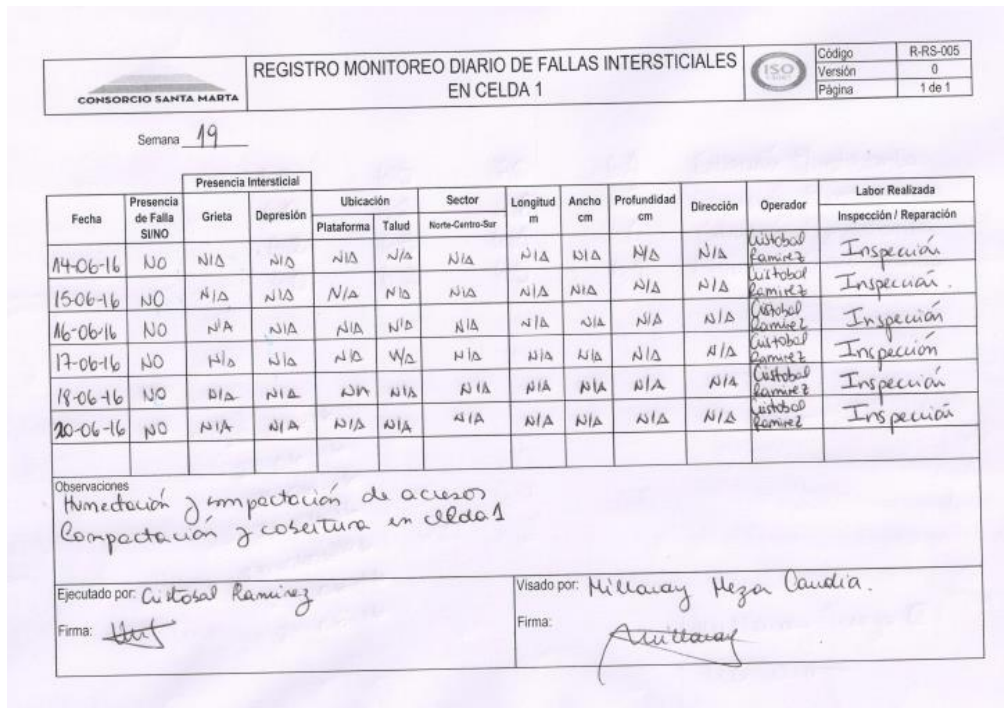 CONSORCIO SANTA MARTA
REGISTRO MONITOREO DIARIO DE FALLAS INTERSTICIALES
EN CELDA 1
ISO
Código R-RS-005
Versión 0
Página 1 de 1
Semana 19
Presencia Intersticial
Fecha Presencia de Falla SI/NO Grieta Depresión Ubicación Plataforma Talud Sector Norte-Centro-Sur Longitud m Ancho cm Profundidad cm Dirección Operador Labor Realizada Inspección / Reparación
14-06-16 NO N/A N/A N/A N/A N/A N/A N/A N/A N/A Cristobal Ramirez Inspección
15-06-16 NO N/A N/A N/A N/A N/A N/A N/A N/A N/A Cristobal Ramirez Inspección.
16-06-16 NO N/A N/A N/A N/A N/A N/A N/A N/A N/A Cristobal Ramirez Inspección
17-06-16 NO N/A N/A N/A N/A N/A N/A N/A N/A N/A Cristobal Ramirez Inspección
18-06-16 NO N/A N/A N/A N/A N/A N/A N/A N/A N/A Cristobal Ramirez Inspección
20-06-16 NO N/A N/A N/A N/A N/A N/A N/A N/A N/A Cristobal Ramirez Inspección
Observaciones
Humectación y compactación de accesos
Compactación y cobertura en celda 1
Ejecutado por: Cristobal Ramirez
Visado por: Millaray Meza Claudia.
Firma:
Firma: AMillaray